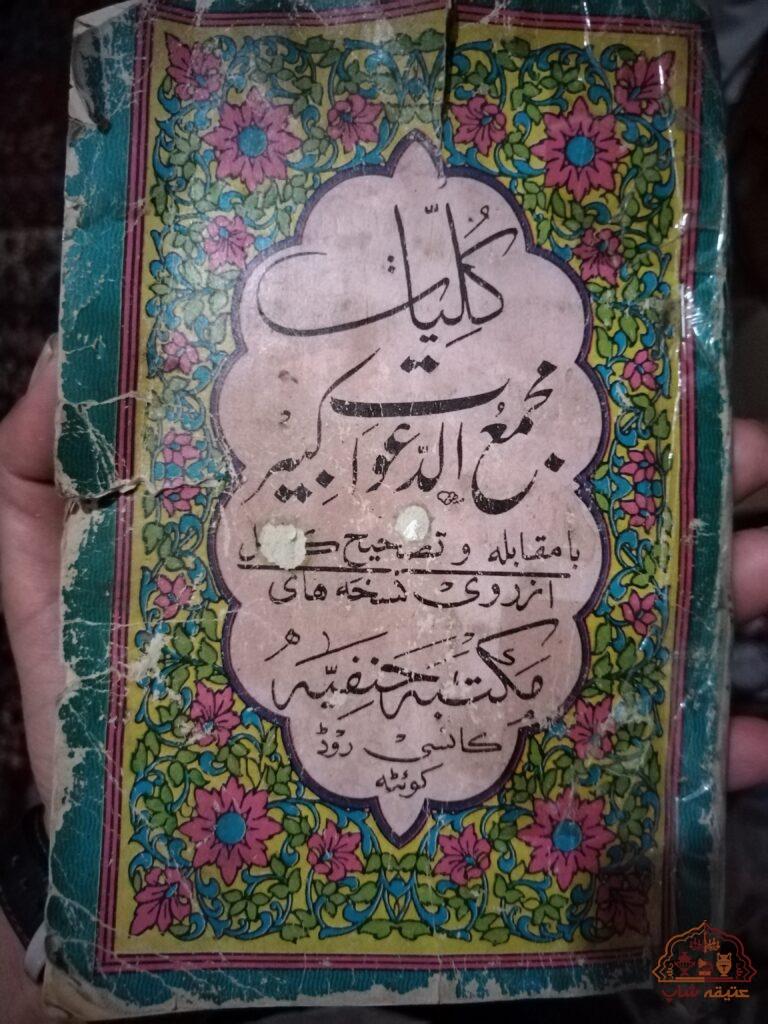 كُلِيّات
مجمعُ الدّعوَات كبِيْر
بامقابله وتصحيح كامل
ازروی نسخه های
مَكتبَہ حَنفِیَّہ
کانسی روڈ
کوئٹہ
عتیقه شاپ